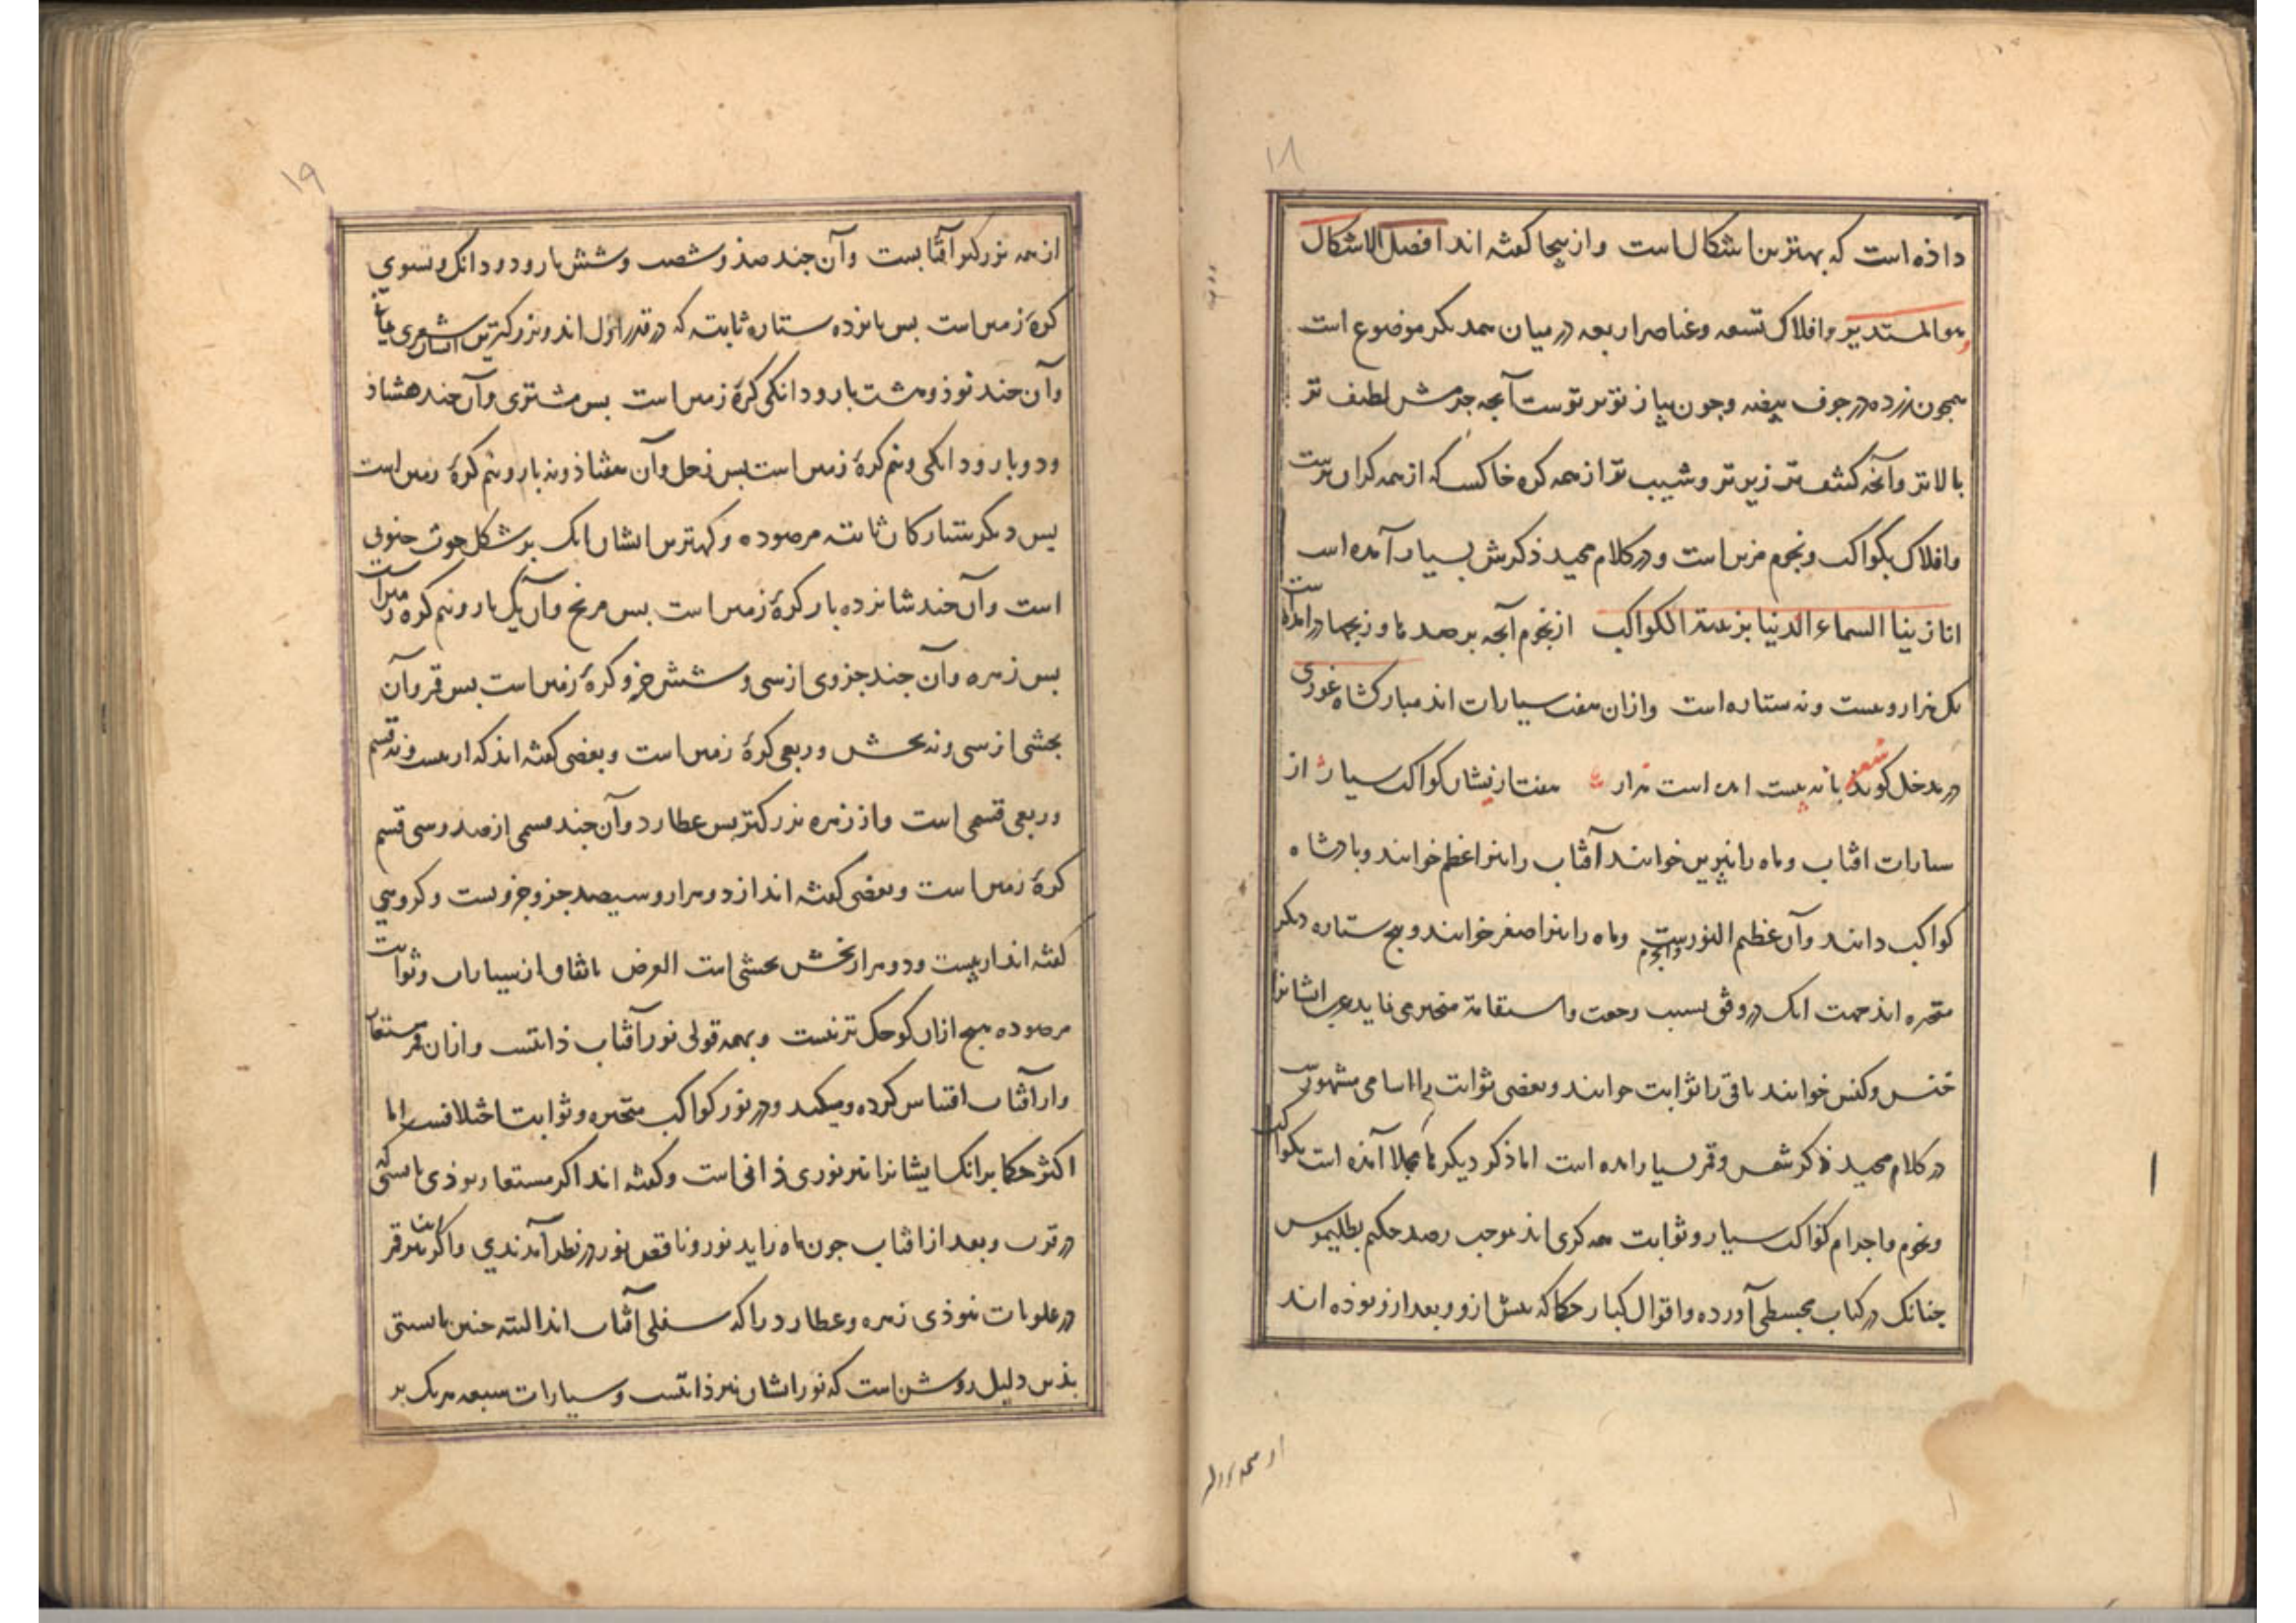 ۱۸
داذه است که بهترین اشکال است و ازینجا کفته اند افضل الاشکال
هو المستدیر و افلاک تسعه و عناصر اربعه در میان همدیکر موضوع است
همجون زرده در جوف بیضه و جون پیاز توبرتوست آنجه جرمش لطیف تر
بالاتر و آنجه کثیف تر زیرتر و شیب تر از همه کره خاکست که از همه کران ترست
و افلاک بکواکب و نجوم مزین است و در کلام مجید ذکرش بسیار آمده است
انا زینا السماء الدنیا بزینة الکواکب از نجوم آنجه برصد ما و زیجها در آمده
یک هزار و بیست و نه ستاره است و از آن هفت سیارات اند مبارکشاه غوری
در مدخل کوید شعر با نه بیست امده است هزار هفت ازیشان کواکب سیار از
سیارات افتاب و ماه را نیرین خوانند آفتاب را نیر اعظم خوانند و بادشاه
کواکب دانند و آن عظیم النورست والجرم و ماه را نیر اصغر خوانند و بنج ستاره دیکر
متحیره اند جهت انک در وقی بسبب رجعت و استقامة متحیر می نماید عرب ایشانرا
خنس و کنس خوانند باقی را ثوابت خوانند و بعضی ثوابت را اسامی مشهورست
در کلام مجید ذکر شمس و قمر بسیار امده است اما ذکر دیکرها مجملا آمذه است بکواکب
و نجوم و اجرام کواکب سیار و ثوابت همه کری اند بموجب رصد حکیم بطلیموس
جنانک در کتاب مجسطی آورده و اقوال کبار حکما که بیش ازو و بعد ازو بوذه اند
۱۹
از همه بزرکتر آفتابست و آن جند صذ و شصت و شش بار و دو دانک و تسوی
کرهٔ زمین است بس بانزده ستاره ثابته که در قدر اول اند و بزرکترین ایشان شعری یمانی
و آن جند نوذ و هشت بار و دانکی کرهٔ زمین است بس مشتری و آن جند هشتاذ
و دو بار و دانکی و نیم کرهٔ زمین است بس زحل و آن هفتاذ و نه بار و نیم کرهٔ زمین است
بس دیکر ستارکان ثابته مرصوده و کهترین ایشان انک بر شکل حوت جنوبی
است و آن جند شانزده بار کرهٔ زمین است بس مریخ و آن یک بار و نیم کرهٔ زمین است
بس زهره و آن جند جزوی از سی و شش جزو کرهٔ زمین است بس قمر و آن
بخشی از سی و نه بخش و ربعی کرهٔ زمین است و بعضی کفته اند که از بیست و نه قسم
و ربعی قسمی است و از زهره بزرکتر بس عطارد و آن جند قسمی از صد و سی قسم
کرهٔ زمین است و بعضی کفته اند از دو هزار و سیصد جزو جزویست و کروهی
کفته اند از بیست و دو هزار بخش بخشی است الغرض باتفاق از سیارات و ثوابت
مرصوده هیج ازان کوجک تر نیست و بهمه قولی نور آفتاب ذاتیست و ازان قمر مستعار
و از آفتاب اقتباس کرده و میکند و در نور کواکب متحیره و ثوابت اختلافست اما
اکثر حکما برانک ایشانرا نیز نوری ذاتی است و کفته اند اکر مستعار بوذی بایستی که
در قرب و بعد از افتاب جون ماه زاید نور و ناقص نور در نظر آمدندی و اکر این قمر
در علویات نبوذی زهره و عطارد را که سفلی آفتاب اند البته جنین بایستی
بذین دلیل روشن است که نور ایشان نیز ذاتیست و سیارات سبعه هر یک بر